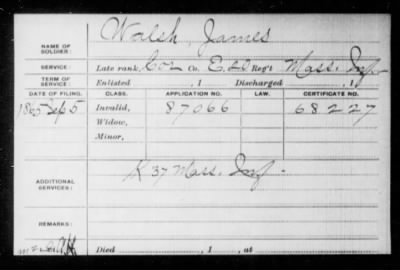 NAME OF SOLDIER: Walsh, James
SERVICE: Late rank, Cor Co. E. 20 Reg't Mass. Inf
TERM OF SERVICE: Enlisted , 1 Discharged , 1
DATE OF FILING. CLASS. APPLICATION NO. LAW. CERTIFICATE NO.
1865 Sep 5 Invalid, 87066 68227
Widow,
Minor,
ADDITIONAL SERVICES: K 37 Mass. Inf.
REMARKS:
Died , 1 , at